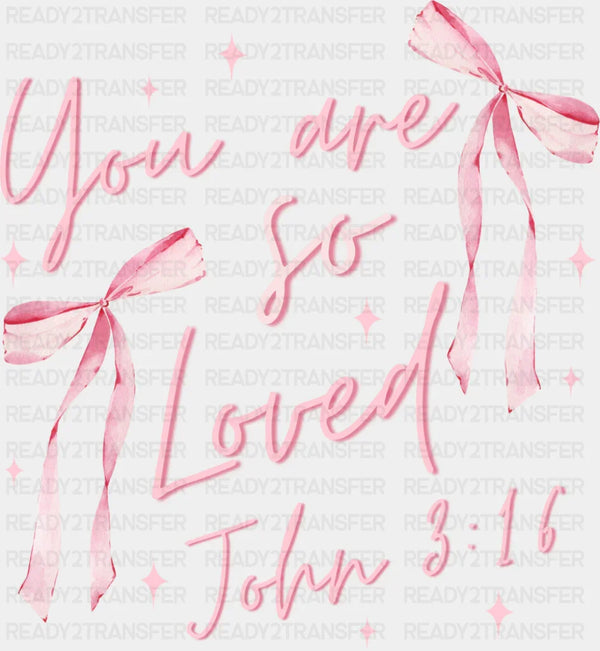 You are
so
Loved
John 3:16
READY2TRANSFER